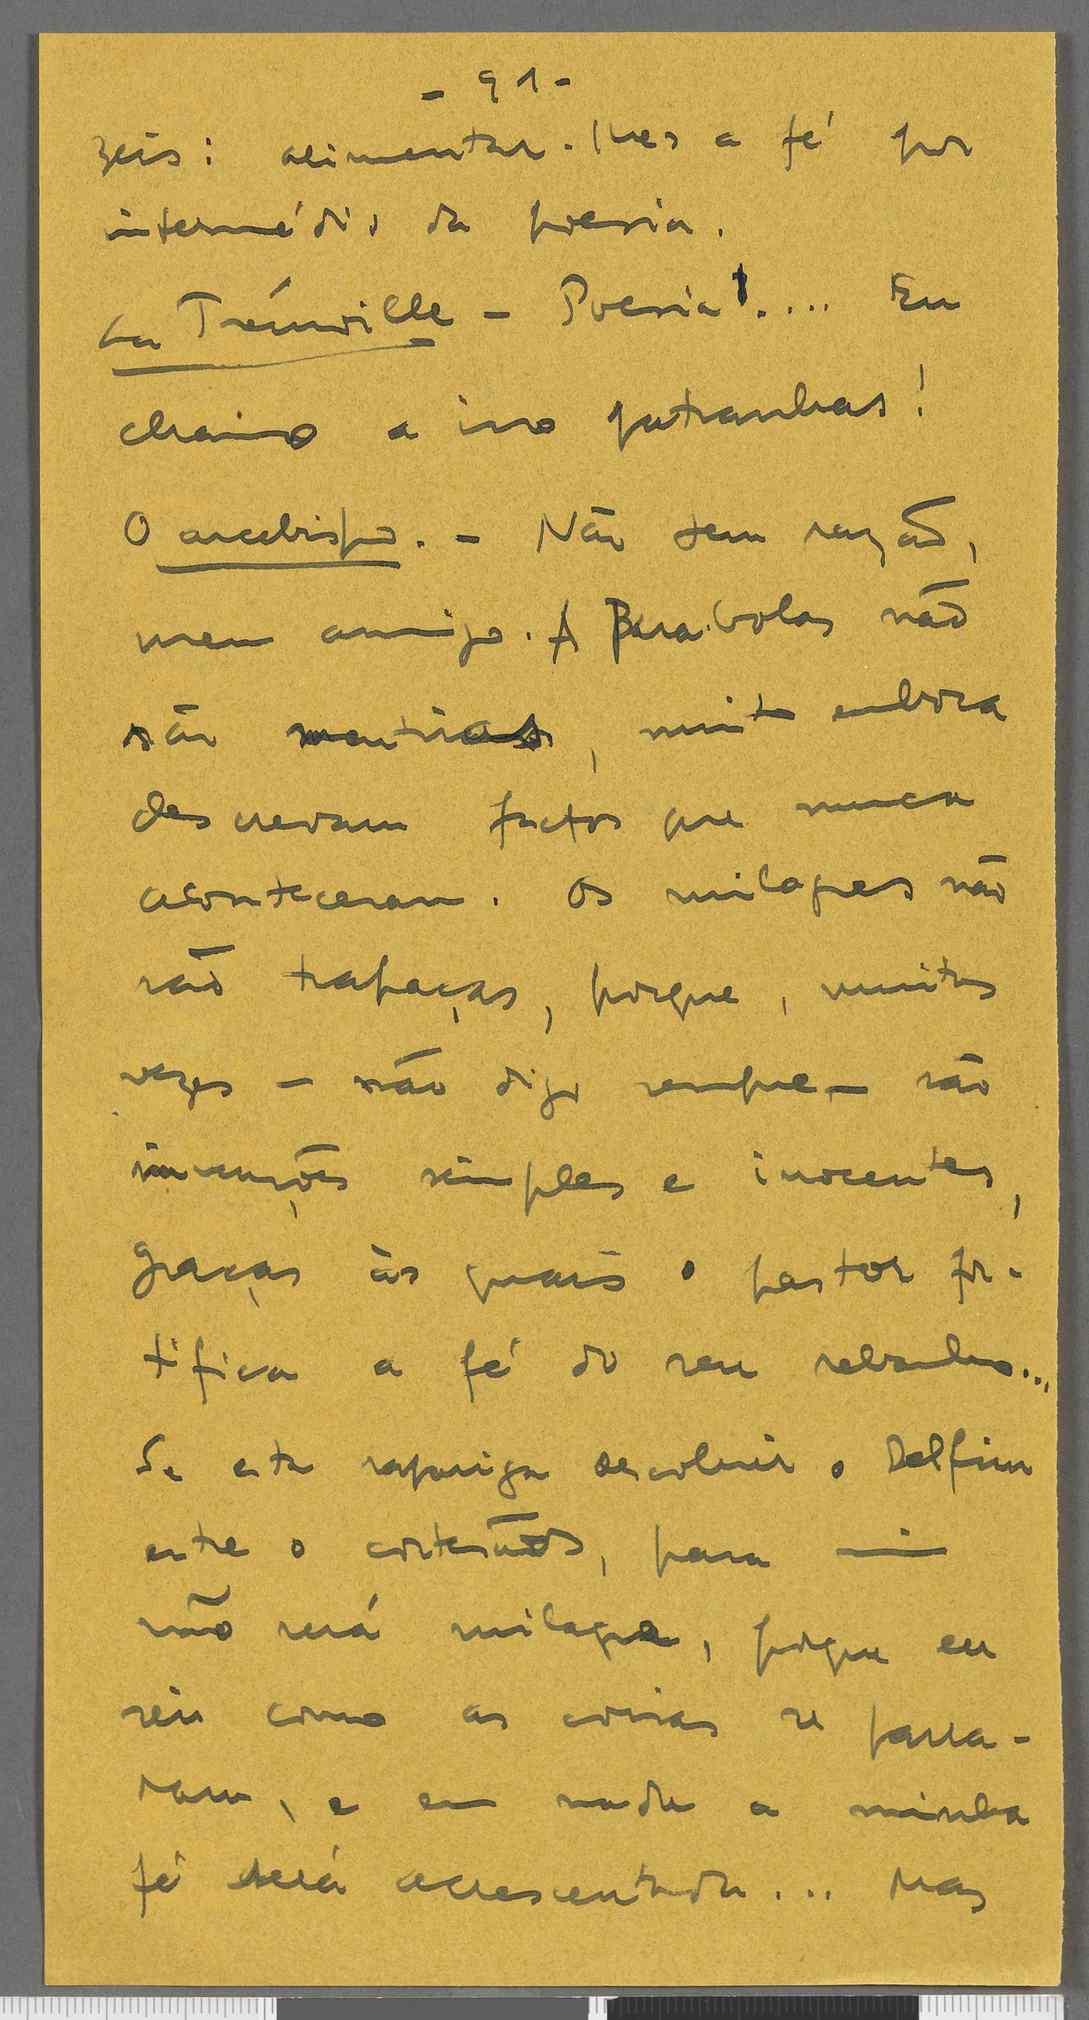 - 91 -
zeis: alimentar-lhes a fé por
intermédio da poesia.
La Trémoille - Poesia!.... Eu
chamo a isso patranhas!
O arcebispo. - Não tem razão,
meu amigo. A Parabolas não
são mentiras, muito embora
descrevam factos que nunca
aconteceram. Os milagres não
são trapaças, porque, muitas
vezes - não digo sempre - são
invenções simples e inocentes,
graças às quais o pastor for-
tifica a fé do seu rebanho...
Se esta rapariga descobrir o Delfim
entre o cortesãos, para mim
não será milagre, porque eu
sei como as coisas se passa-
ram, e em nada a minha
fé será acrescentada... Mas